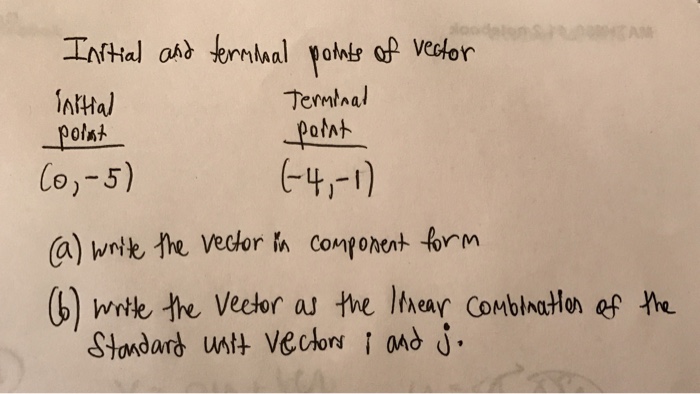 Initial and terminal points of vector
initial Terminal
point point
(0,-5) (-4,-1)
(a) write the vector in component form
(b) write the vector as the linear combination of the
standard unit vectors i and j.